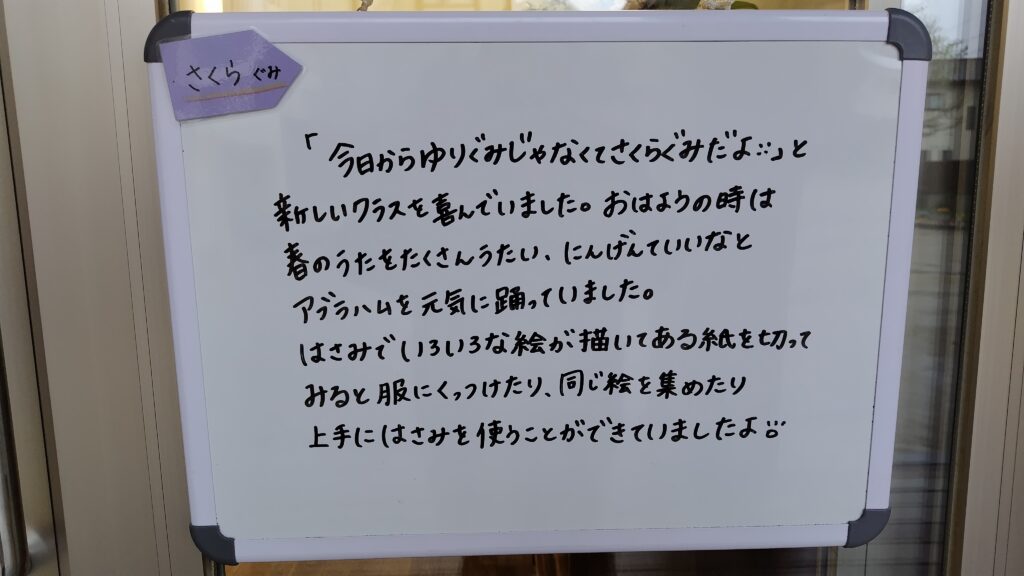 さくらぐみ
「今日からゆりぐみじゃなくてさくらぐみだよ:¨」と
新しいクラスを喜んでいました。おはようの時は
春のうたをたくさんうたい、にんげんていいなと
アブラハムを元気に踊っていました。
はさみでいろいろな絵が描いてある紙を切って
みると服にくっつけたり、同じ絵を集めたり
上手にはさみを使うことができていましたよ